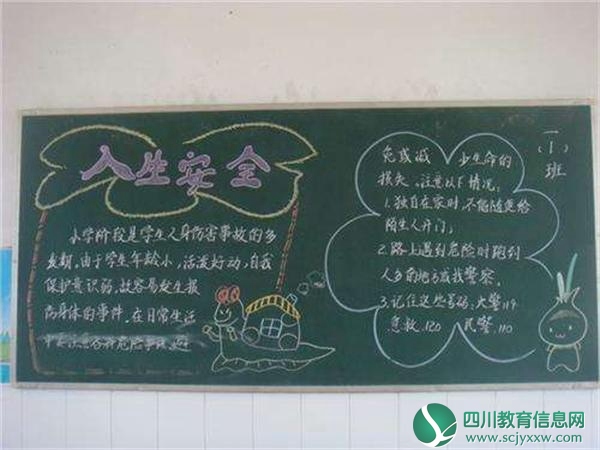 人生安全
小学阶段是学生人身伤害事故的多
发期。由于学生年龄小，活泼好动，自我
保护意识弱，故容易发生损
伤身体的事件。在日常生活
中要注意各种危险事故
免或减少生命的
损失。注意以下情况：
1.独自在家时，不能随便给
陌生人开门；
2.路上遇到危险时跑到
人多的地方或找警察。
3.记住这些号码：火警119
急救，120 民警，110
一
(1)
班
四川教育信息网
www.scjyxxw.com